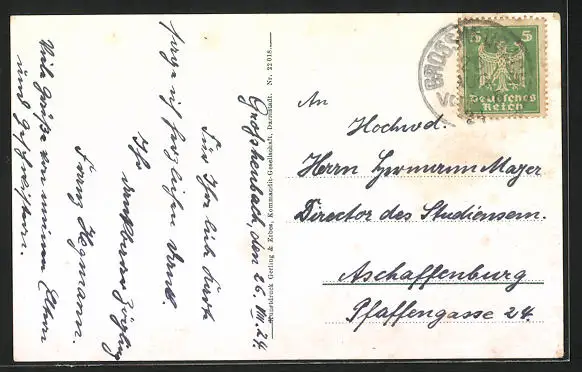 Großhenbach, den 26. VIII. 24.
Für Ihre
sage ich herzlichen Dank.
Ihr
dankbarer Zögling
Franz Hegmann.
Viele Grüße von meinen Eltern
und Geschwistern.
Kunstdruck Gerling & Erbes, Kommandit-Gesellschaft, Darmstadt. Nr. 22018
GROSS
5 5
Deutsches
Reich
An
Hochwd.
Herrn Hermann Mayer
Director des Studiensem.
Aschaffenburg
Pfaffengasse 24.